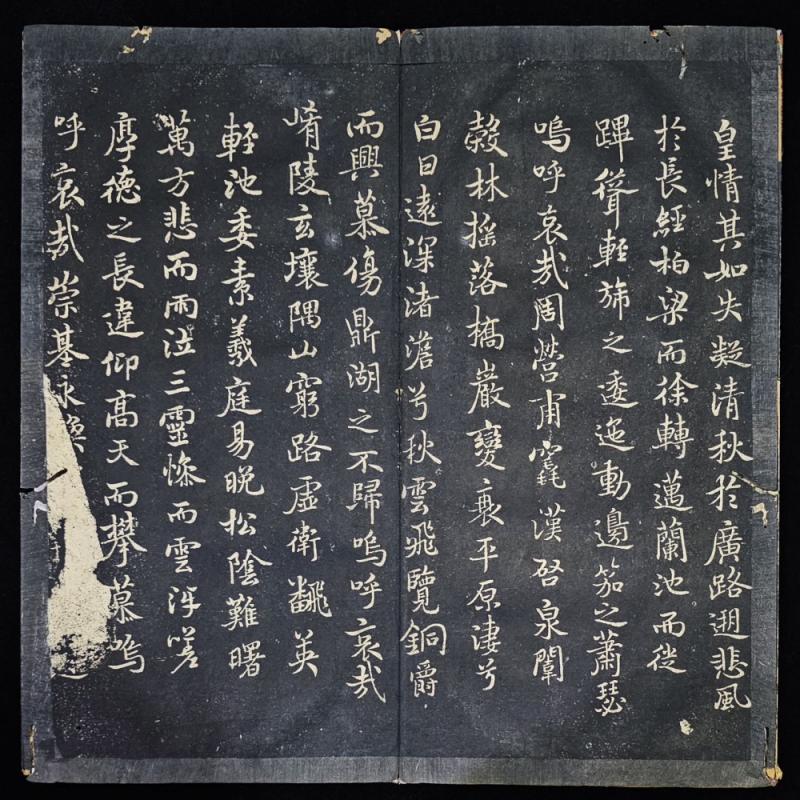 皇情其如失凝清秋於廣路遡悲風
於長經柏梁而徐轉邁蘭池而從
蹕聳輕旆之逶迤動邊笳之蕭瑟
嗚呼哀哉周營甫竁漢啓泉闈
穀林搖落橋巖變衰平原淒兮
白日遠深渚澹兮秋雲飛覽銅爵
而興慕傷鼎湖之不歸嗚呼哀哉
崤陵玄壤隅山窮路虛衛翻英
輕池委素羲庭易晚松陰難曙
萬方悲而雨泣三靈慘而雲沍嗟
厚德之長違仰高天而攀慕嗚
呼哀哉崇基永